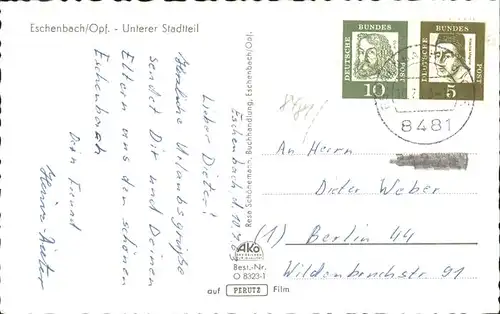 Eschenbach/Opf. - Unterer Stadtteil
Eschenbach d. 10.7.
Lieber Dieter!
Herzliche Urlaubsgrüße
sendet Dir und Deinen
Eltern aus dem schönen
Eschenbach
Dein Freund
Resa Schönemann, Buchhandlung, Eschenbach/Opf.
AKo
Best.-Nr.
O 8323-1
auf PERUTZ Film
DEUTSCHE
BUNDES
POST
10
DEUTSCHE
BUNDES
POST
5
8481
An Herrn
Dieter Weber
(1) Berlin 44
Wildenbruchstr. 91